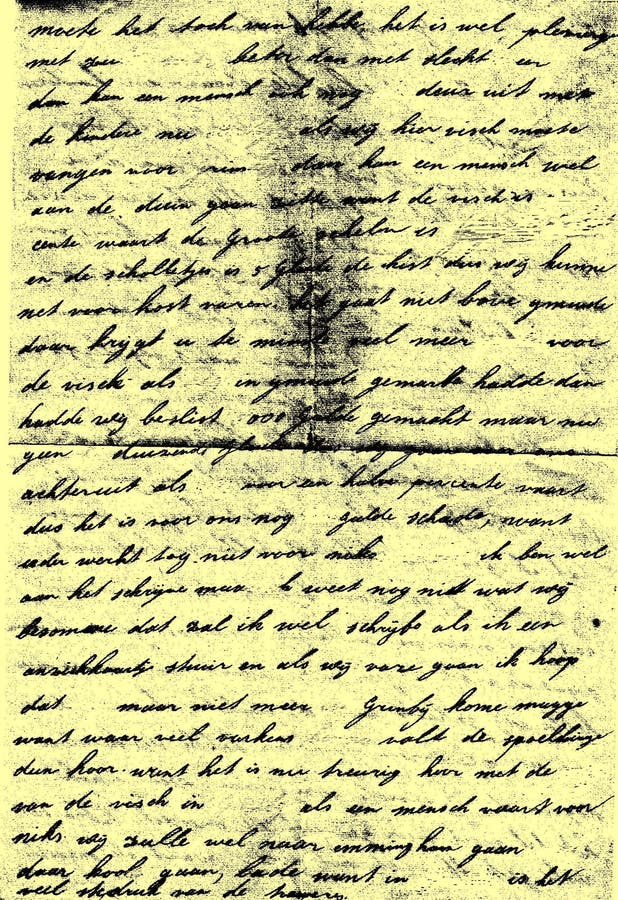 moete het toch van hebbe het is wel
met zee beter dan met slecht eer
dan kan een mensch ook nog deur uit met
de kindere nu als wij hier visch moete
vangen voor dan kan een mensch wel
aan de deur gaan zitte want de visch is
cente waart de groote schelv is
en de scholletjes is 5 gulde de kist dus wij kunne
net voor kost varen. het gaat niet bove ymuide
daar krijgt u te minste veel meer voor
de visch als in ymuide gemarkt hadde dan
hadde wij beslist 000 gulde gemaakt maar nu
geen duizend
achteruit als voor een halve percente vaart
dus het is voor ons nog gulde schade, want
ieder werkt tog niet voor niks ik ben wel
aan het schrijve maar ik weet nog niet wat wij
besomme dat zal ik wel schrijve als ik een
anzichkaartje stuur en als wij vare gaan ik hoop
dat maar niet meer Grimby kome mugge
want waar veel varkens valt de spoeldinge
deun hoor want het is nu treurig hoor met de
van de visch in als een mensch vaart voor
niks wij zulle wel naar emmingham gaan
daar kool gaan, lade want in is het
veel van de